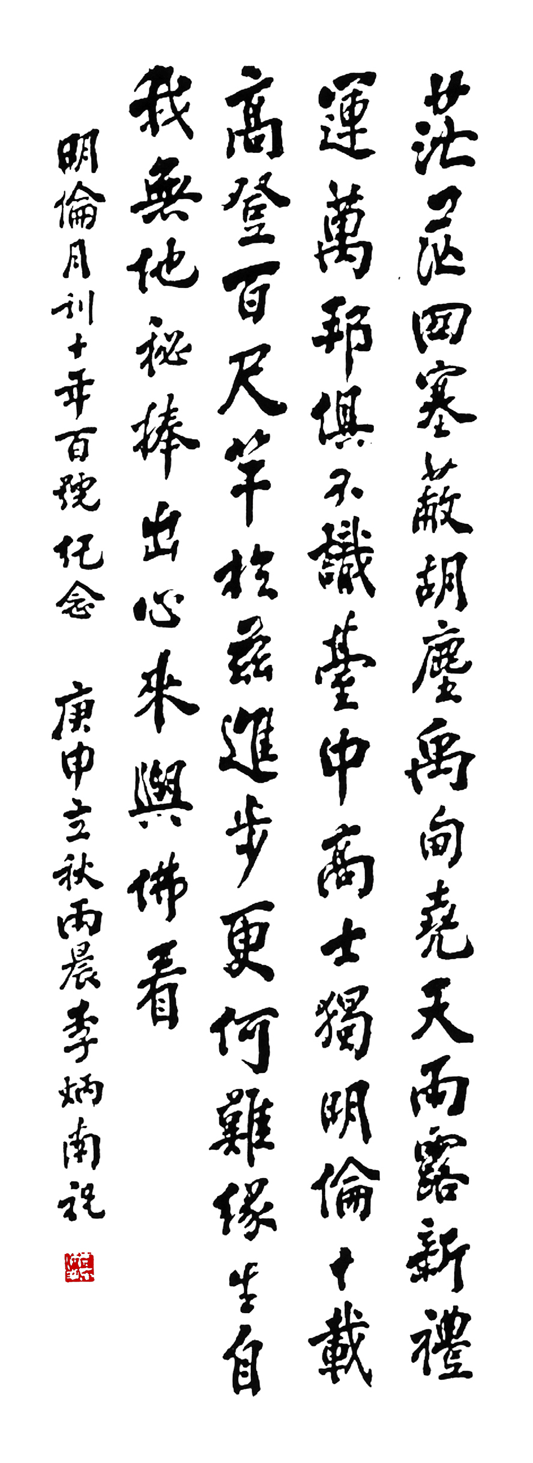 茫茫四塞蔽胡塵禹甸堯天雨露新禮
運萬邦俱不識臺中高士獨明倫十載
高登百尺竿於茲進步更何難緣生自
我無他秘捧出心來與佛看
明倫月刊十年百號紀念 庚申立秋雨晨李炳南祝